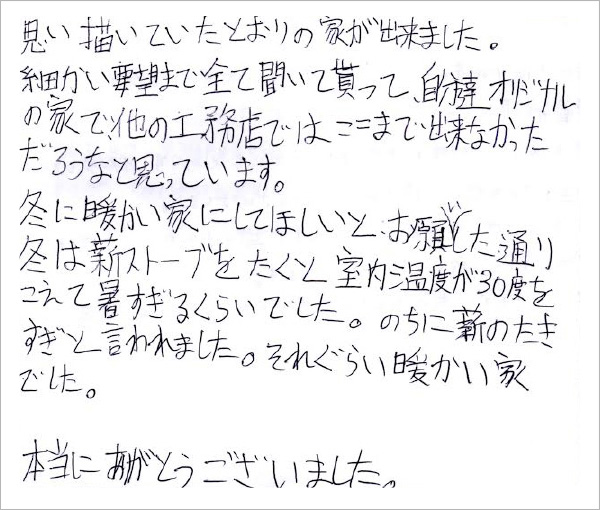 思い描いていたとおりの家が出来ました。
細かい要望まで全て聞いて貰って、自分達オリジナル
の家で、他の工務店では、ここまで出来なかった
だろうなと思っています。
冬に暖かい家にしてほしいと、お願いした通り
冬は薪ストーブをたくと室内温度が30度を
こえて暑すぎるくらいでした。のちに薪のたき
すぎと言われました。それぐらい暖かい家
でした。
本当にありがとうございました。